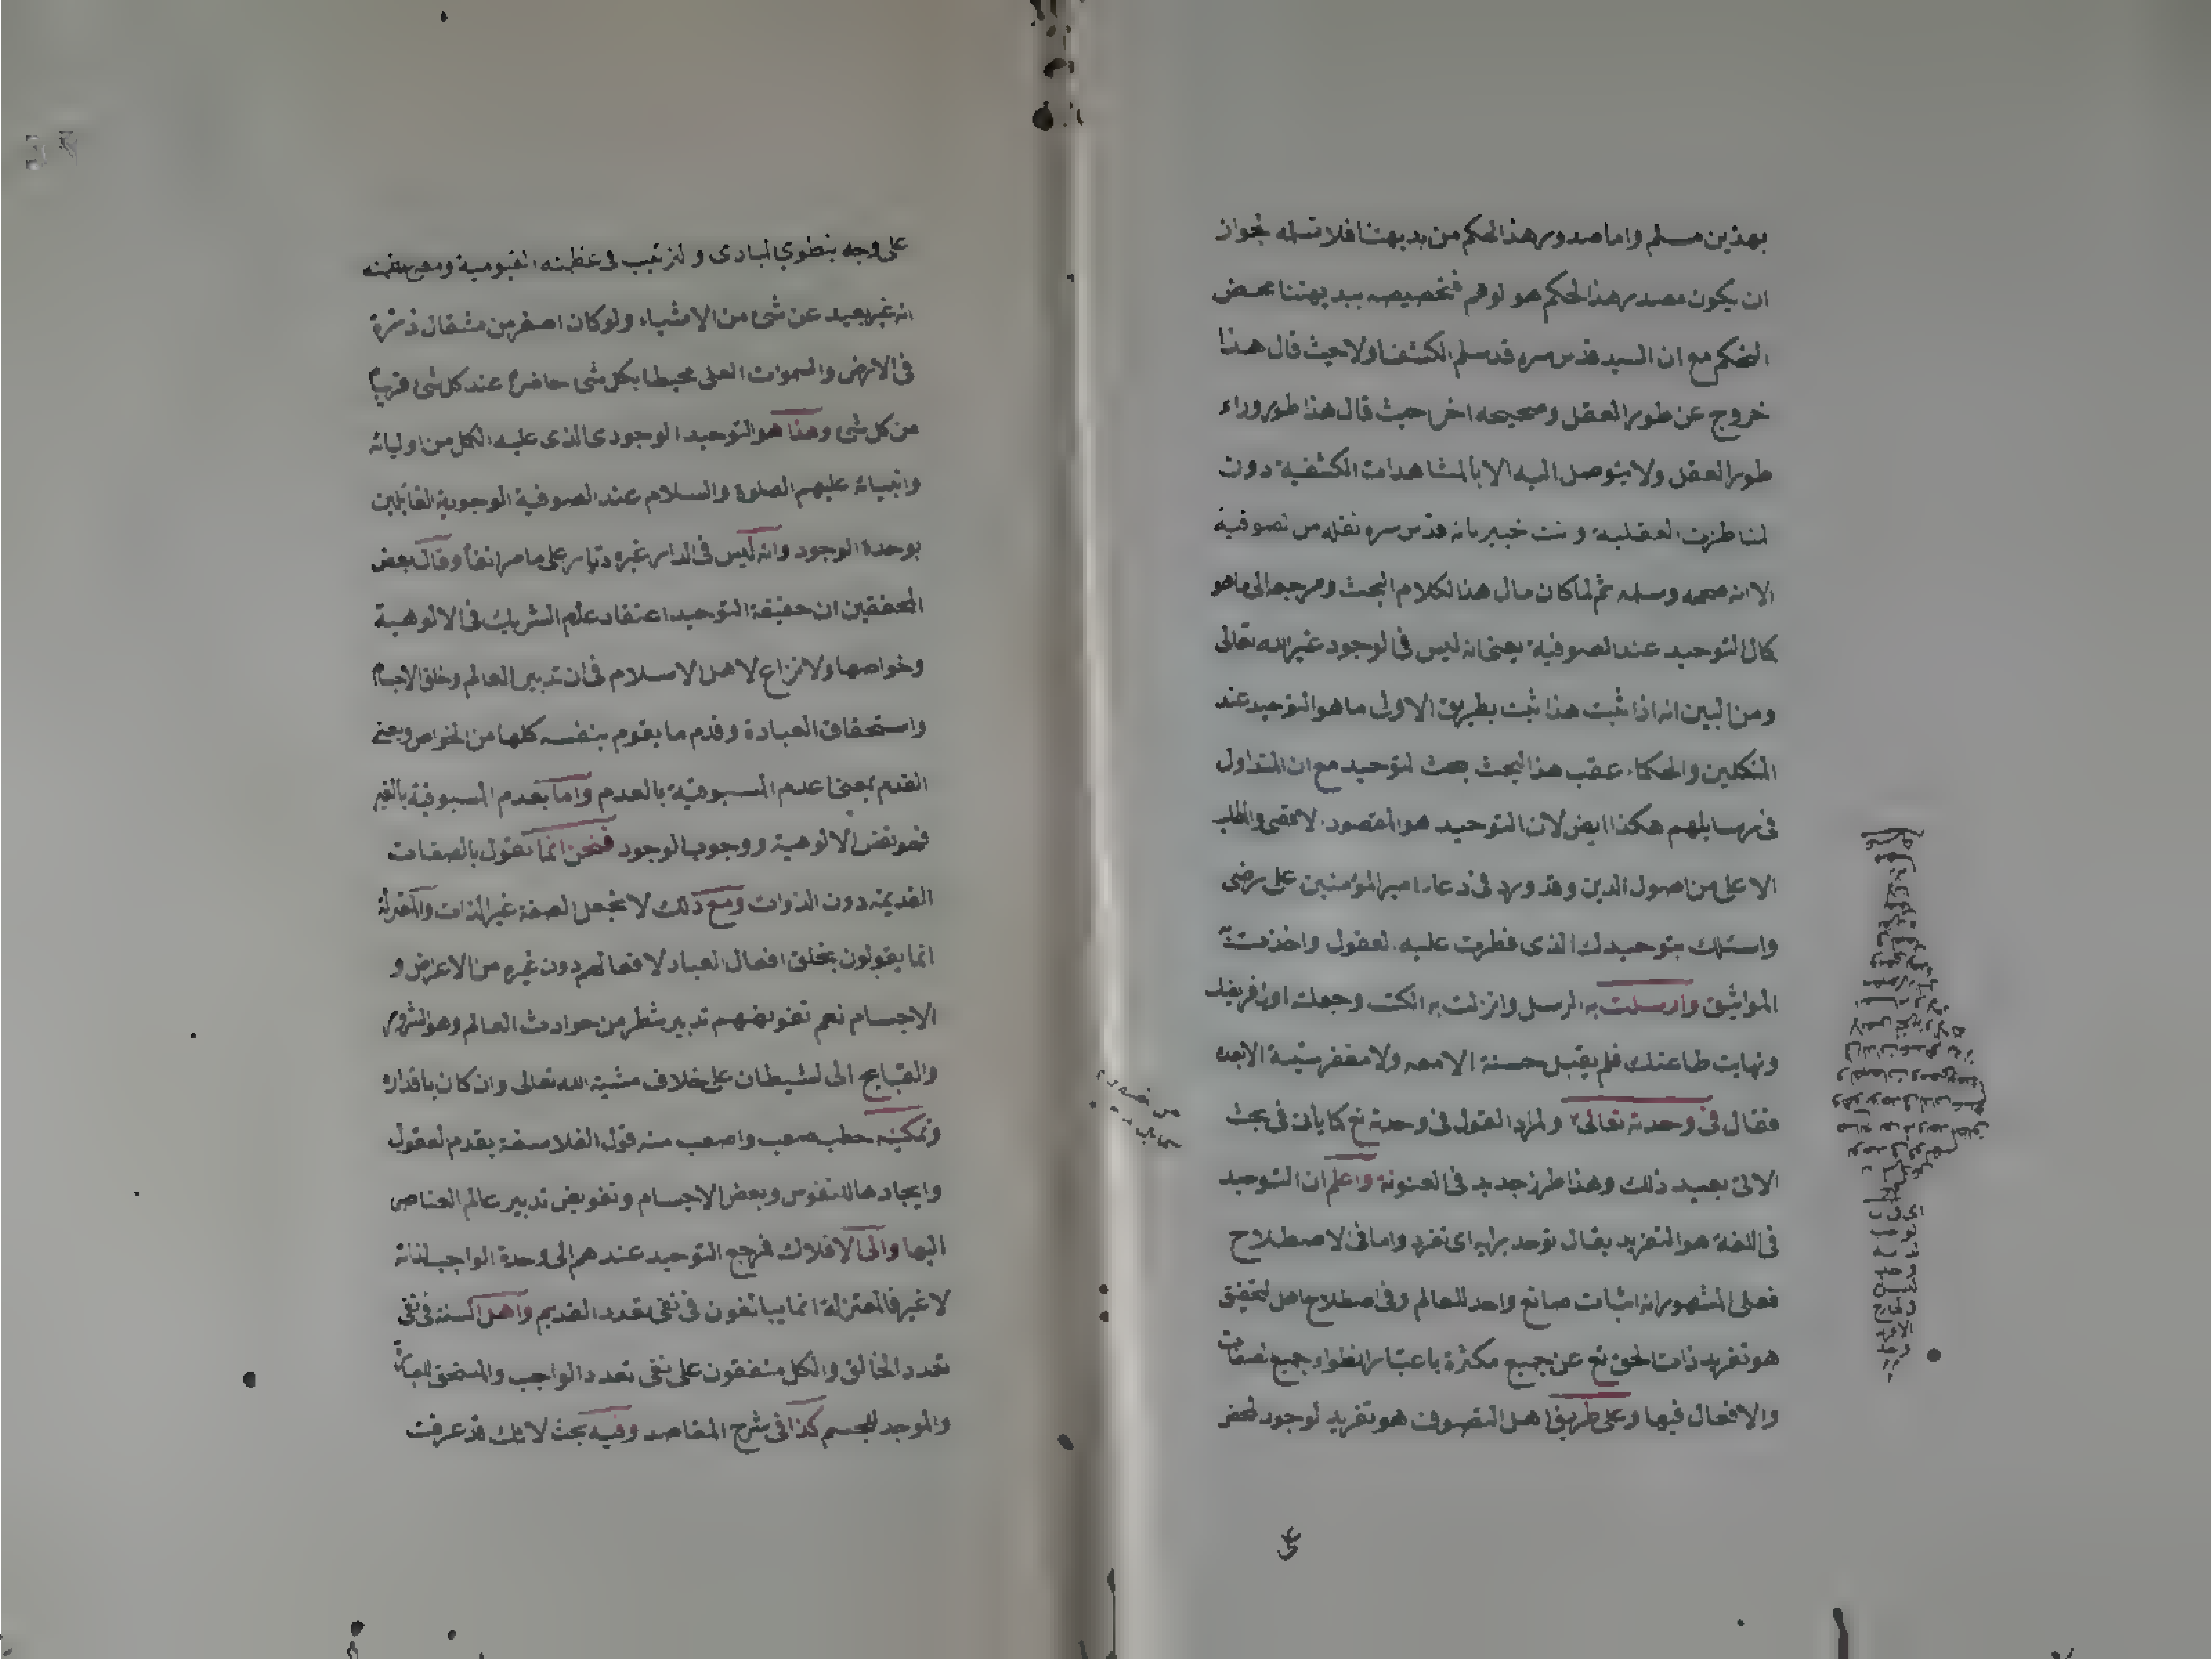 بهذين مسلم واما صدور هذا الحكم من بديهتنا فلا نسلمه لجواز
ان يكون مصدر هذا الحكم هو لوهم فتخصيصه ببديهتنا محض
التحكم مع ان السيد قدس سره قد سلم الكشف اولا حيث قال هذا
خروج عن طور العقل وصححه اخرا حيث قال هذا طور وراء
طور العقل ولا يتوصل اليه الا بالمشاهدات الكشفية دون
المناظرات العقلية وانت خبير بانه قدس سره نقله من الصوفية
الا انه صححه وسلمه ثم لما كان مال هذا الكلام البحث ومرجعه الى ما هو
كمال التوحيد عند الصوفية يعنى انه ليس فى الوجود غير الله تعالى
ومن البين انه اذا ثبت هذا ثبت بطريق الاولى ما هو التوحيد عند
المتكلمين والحكماء عقب هذا البحث بحث التوحيد مع ان المتداول
فى رسايلهم هكذا ايض لان التوحيد هو المقصود الاقصى والمطلب
الاعلى من اصول الدين وقد ورد فى دعاء امير المؤمنين على رضى
واسئلك بتوحيدك الذى فطرت عليه العقول واخذت به
المواثيق وارسلت به الرسل وانزلت به الكتب وجعلته اول فرايضك
ونهايت طاعتك فلم يقبل حسنة الا معه ولا مغفر سيئة الا بعده
فقال فى وحدته تعالى والمراد القول فى وحدته تع كما يأتى فى بحث
الاتى بعيد ذلك وهذا طرز جديد فى العنونة واعلم ان التوحيد
فى اللغة هو التفريد يقال توحد برايه اى تفرد واما فى الاصطلاح
فعلى المشهور انه اثبات صانع واحد للعالم وفى اصطلاح اهل التحقيق
هو تفريد ذات الحق تع عن جميع مكثرة باعتبار انطواء جميع الصفات
والافعال فيها وعلى طريق اهل التصوف هو تفريد الوجود المحض
على
على وجه ينطوى المبادى والترتيب فى عظمته القيومية ومع عظمته
انه غير بعيد عن شئ من الاشياء ولو كان اصغر من مثقال ذرة
فى الارض والسموات العلى محيطا بكل شى حاضرا عند كل شى قريبا
من كل شى وهذا هو التوحيد الوجودى الذى عليه الكل من اوليائه
وانبيائه عليهم الصلوة والسلام عند الصوفية الوجودية القائلين
بوحدة الوجود وانه ليس فى الدار غيره ديار على ما مر انفا وقال بعض
المحققين ان حقيقة التوحيد اعتقاد عدم الشريك فى الالوهية
وخواصها ولا نزاع لاهل الاسلام فى ان تدبير العالم وخلق الاجسام
واستحقاق العبادة وقدم ما يقوم بنفسه كلها من الخواص ويعنى
القدم بمعنى عدم المسبوقية بالعدم واما بعدم المسبوقية بالغير
فهو نفس الالوهية ووجوب الوجود فنحن انما نقول بالصفات
القديمة دون الذوات ومع ذلك لا نجعل الصفة غير الذات والمعتزلة
انما يقولون بخلق افعال العباد لافعالهم دون غيره من الاعراض و
الاجسام نعم تفويضهم تدبير شطر من حوادث العالم وهو الشرور
والقبايح الى الشيطان على خلاف مشية الله تعالى وان كان باقداره
وتمكينه خطب صعب واصعب منه قول الفلاسفة بقدم العقول
وايجادها للنفوس وبعض الاجسام وتفويض تدبير عالم العناصر
اليها والى الافلاك فمرجع التوحيد عندهم الى وحدة الواجب لذاته
لا غير فالمعتزلة انما يبالغون فى نفى تعدد القديم واهل السنة فى نفى
تعدد الخالق والكل متفقون على نفى تعدد الواجب والمستحق للعبادة
والموجد للجسم كذا فى شرح المقاصد وفيه بحث لانك قد عرفت